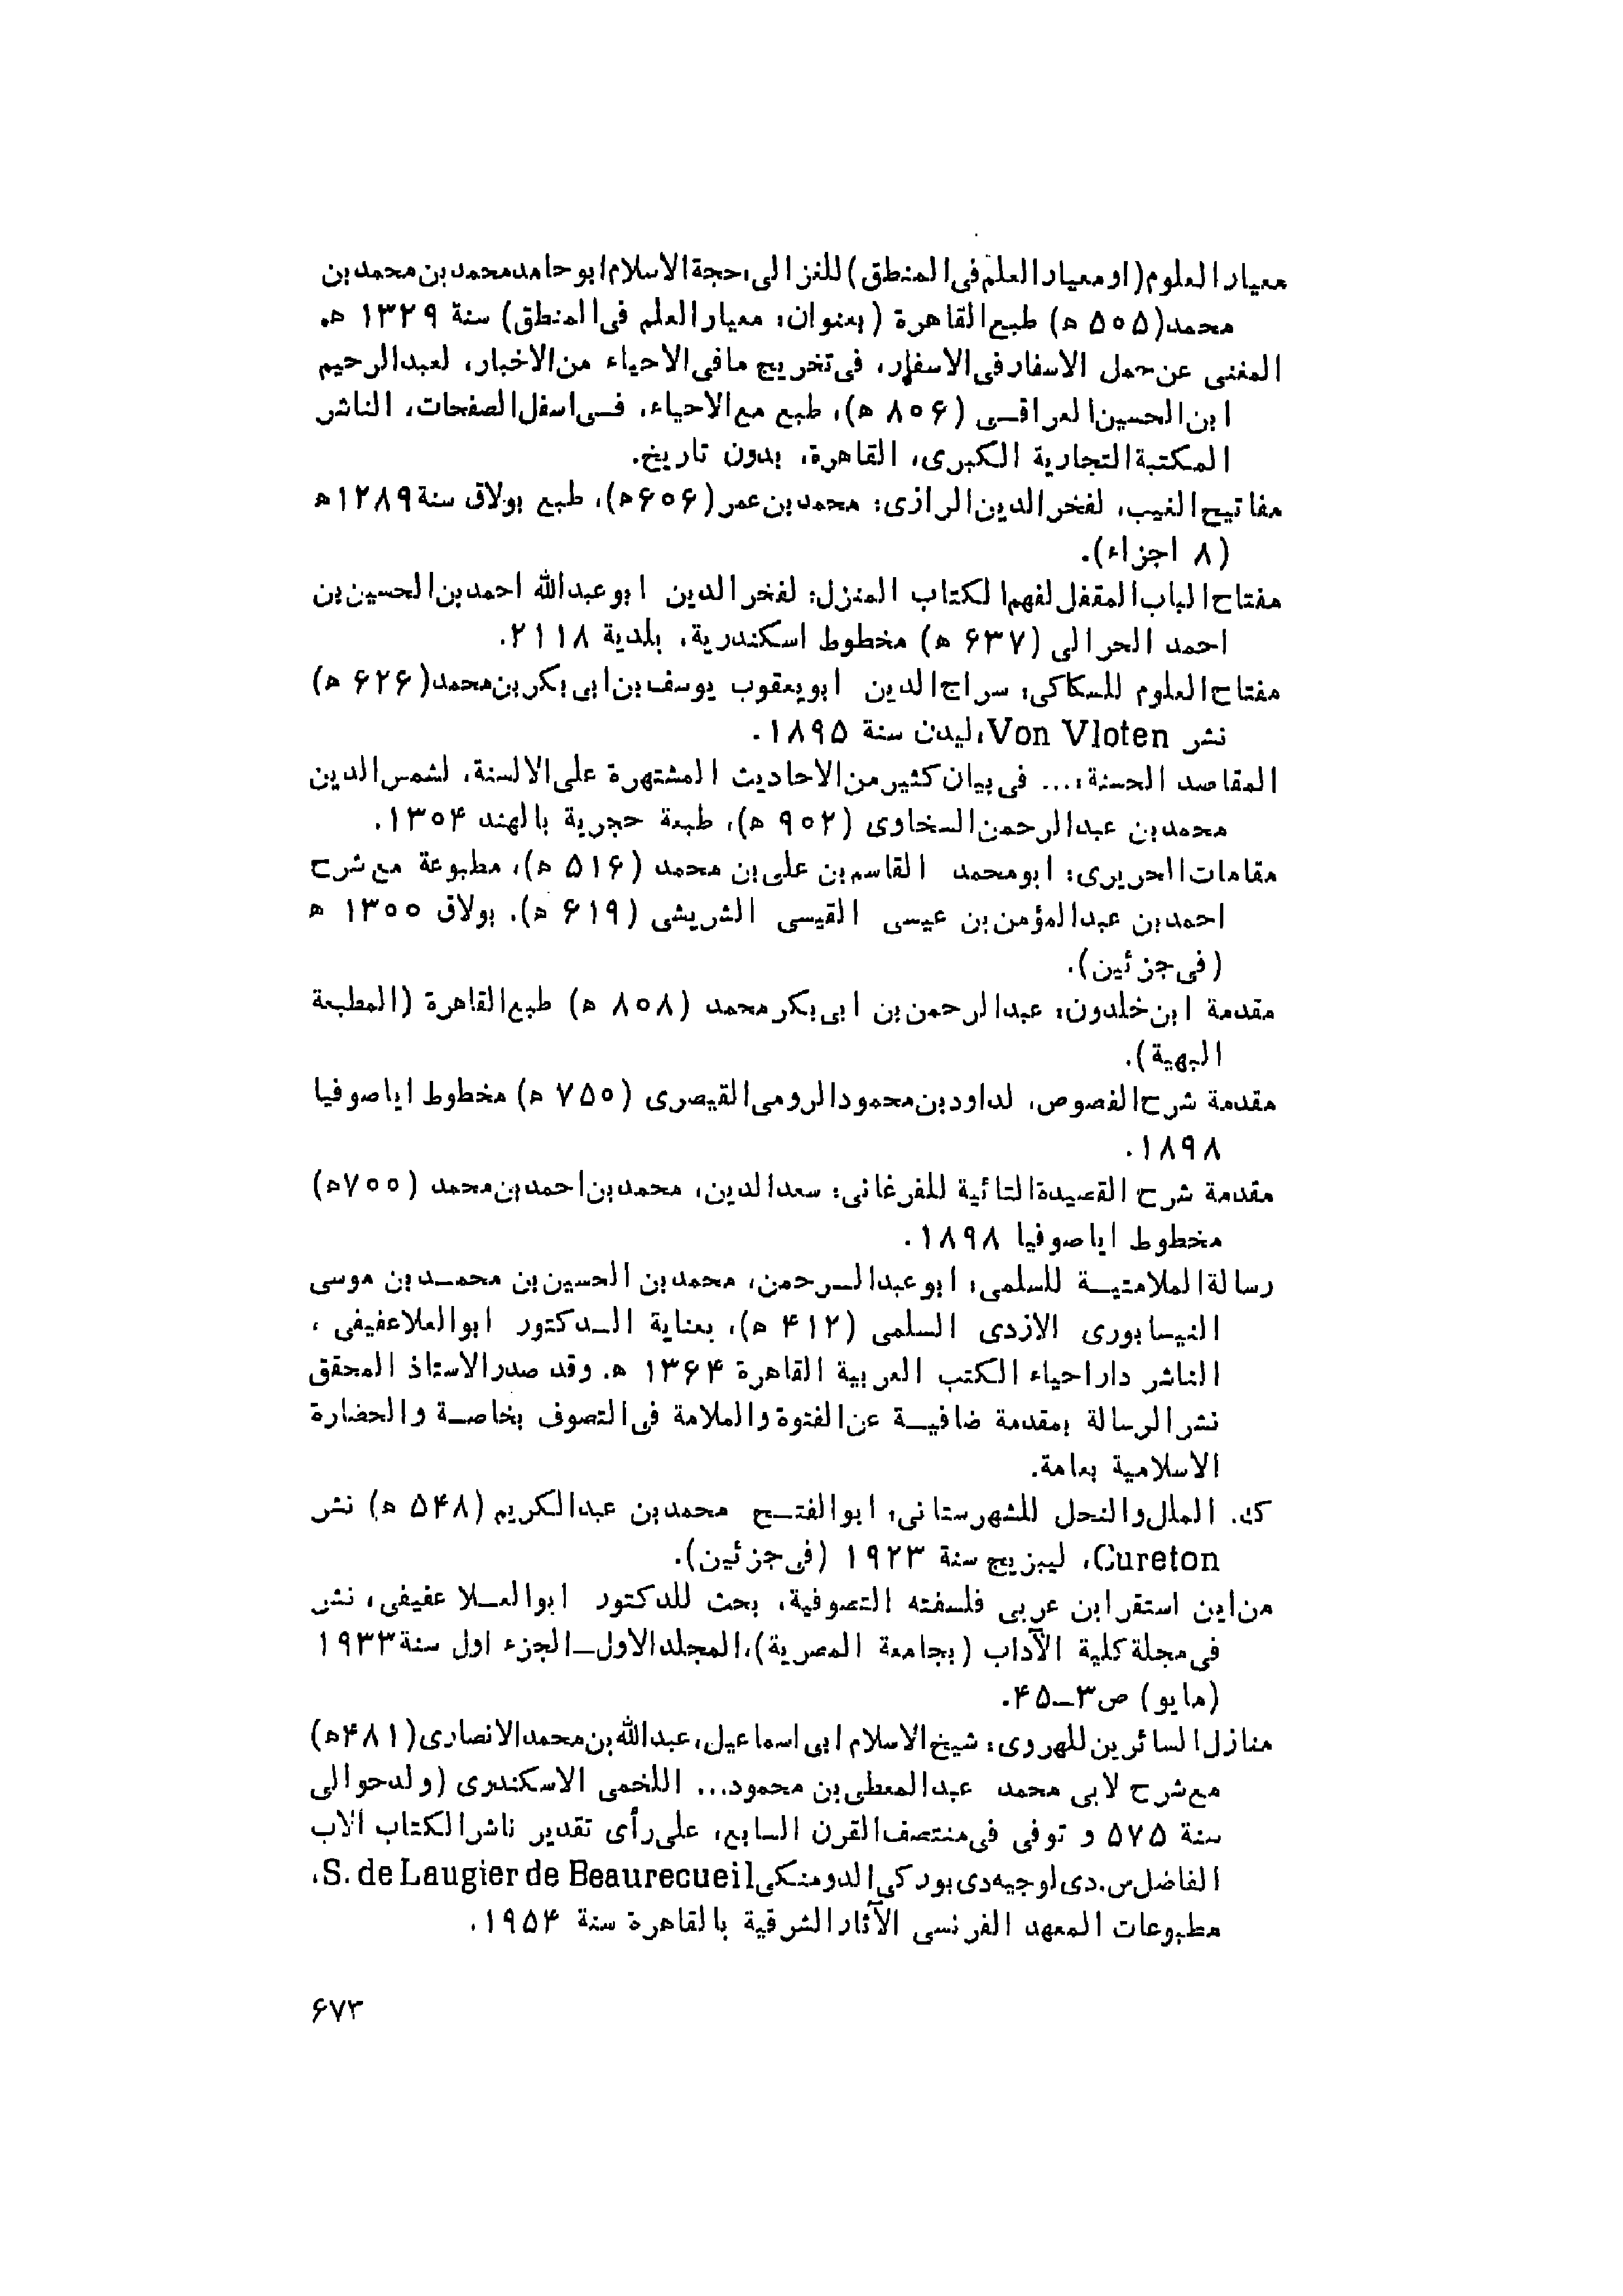 معیار العلوم (او معیار العلم فی المنطق) للغزالی، حجة الاسلام ابوحامد محمد بن محمد بن
محمد (۵۰۵ ه) طبع القاهرة (بعنوان: معیار العلم فی المنطق) سنة ۱۳۲۹ ه.
المغنی عن حمل الاسفار فی الاسفار، فی تخریج ما فی الاحیاء من الاخبار، لعبدالرحیم
ابن الحسین العراقی (۸۰۶ ه)، طبع مع الاحیاء، فی اسفل الصفحات، الناشر
المکتبة التجاریة الکبری، القاهرة، بدون تاریخ.
مفاتیح الغیب، لفخرالدین الرازی: محمد بن عمر (۶۰۶ه)، طبع بولاق سنة ۱۲۸۹ ه
(۸ اجزاء).
مفتاح الباب المقفل لفهم الکتاب المنزل: لفخرالدین ابوعبدالله احمد بن الحسین بن
احمد الحرالی (۶۳۷ ه) مخطوط اسکندریة، بلدیة ۲۱۱۸.
مفتاح العلوم للسکاکی: سراج الدین ابویعقوب یوسف بن ابی بکر بن محمد (۶۲۶ ه)
نشر Von Vloten، لیدن سنة ۱۸۹۵.
المقاصد الحسنة:... فی بیان کثیر من الاحادیث المشتهرة علی الالسنة، لشمس الدین
محمد بن عبدالرحمن السخاوی (۹۰۲ ه)، طبعة حجریة بالهند ۱۳۰۴.
مقامات الحریری: ابومحمد القاسم بن علی بن محمد (۵۱۶ ه)، مطبوعة مع شرح
احمد بن عبدالمؤمن بن عیسی القیسی الشریشی (۶۱۹ ه). بولاق ۱۳۰۰ ه
(فی جزئین).
مقدمة ابن خلدون: عبدالرحمن بن ابی بکر محمد (۸۰۸ ه) طبع القاهرة (المطبعة
البهیة).
مقدمة شرح الفصوص، لداود بن محمود الرومی القیصری (۷۵۰ ه) مخطوط ایاصوفیا
۱۸۹۸.
مقدمة شرح القصیدة التائیة للفرغانی: سعدالدین، محمد بن احمد بن محمد (۷۰۰ه)
مخطوط ایاصوفیا ۱۸۹۸.
رسالة الملامتیة للسلمی: ابوعبدالرحمن، محمد بن الحسین بن محمد بن موسی
النیسابوری الازدی السلمی (۴۱۲ ه)، بعنایة الدکتور ابوالعلا عفیفی،
الناشر دار احیاء الکتب العربیة القاهرة ۱۳۶۴ ه. وقد صدر الاستاذ المحقق
نشر الرسالة بمقدمة ضافیة عن الفتوة والملامة فی التصوف بخاصة والحضارة
الاسلامیة بعامة.
ک. الملل والنحل للشهرستانی: ابوالفتح محمد بن عبدالکریم (۵۴۸ ه) نشر
Cureton، لیبزیج سنة ۱۹۲۳ (فی جزئین).
من این استقر ابن عربی فلسفته التصوفیة، بحث للدکتور ابوالعلا عفیفی، نشر
فی مجلة کلیة الآداب (بجامعة المصریة)، المجلد الاول-الجزء اول سنة ۱۹۳۳
(مایو) ص۳-۴۵.
منازل السائرین للهروی: شیخ الاسلام ابی اسماعیل، عبدالله بن محمد الانصاری (۴۸۱ه)
مع شرح لابی محمد عبدالمعطی بن محمود... اللخمی الاسکندری (ولد حوالی
سنة ۵۷۵ و توفی فی منتصف القرن السابع، علی رأی تقدیر ناشر الکتاب الاب
الفاضل س.دی لوجیه دی بورکی الدومنکی S. de Laugier de Beaurecueil،
مطبوعات المعهد الفرنسی الآثار الشرقیة بالقاهرة سنة ۱۹۵۴.
۶۷۳